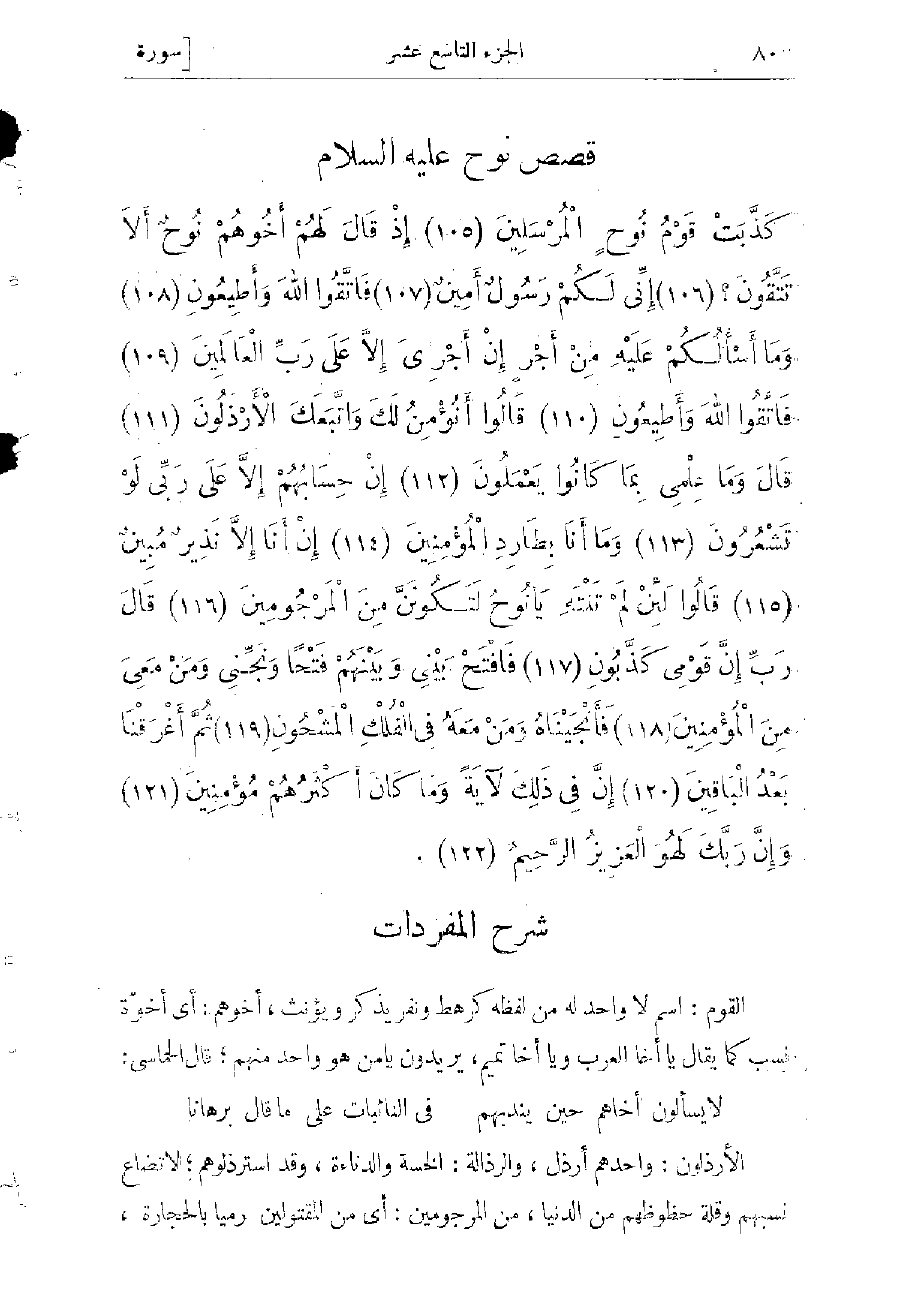 ٨٠ الجزء التاسع عشر [سورة
قصص نوح عليه السلام
كَذَّبَتْ قَوْمُ نُوحٍ الْمُرْسَلِينَ (١٠٥) إِذْ قَالَ لَهُمْ أَخُوهُمْ نُوحٌ أَلاَ
تَتَّقُونَ؟ (١٠٦) إِنِّى لَكُمْ رَسُولٌ أَمِينٌ (١٠٧) فَاتَّقُوا اللهَ وَأَطِيعُونِ (١٠٨)
وَمَا أَسْأَلُكُمْ عَلَيْهِ مِنْ أَجْرٍ إِنْ أَجْرِىَ إِلاَّ عَلَى رَبِّ الْعَالَمِينَ (١٠٩)
فَاتَّقُوا اللهَ وَأَطِيعُونِ (١١٠) قَالُوا أَنُؤْمِنُ لَكَ وَاتَّبَعَكَ الْأَرْذَلُونَ (١١١)
قَالَ وَمَا عِلْمِى بِمَا كَانُوا يَعْمَلُونَ (١١٢) إِنْ حِسَابُهُمْ إِلاَّ عَلَى رَبِّى لَوْ
تَشْعُرُونَ (١١٣) وَمَا أَنَا بِطَارِدِ الْمُؤْمِنِينَ (١١٤) إِنْ أَنَا إِلاَّ نَذِيرٌ مُبِينٌ
(١١٥) قَالُوا لَئِنْ لَمْ تَنْتَهِ يَانُوحُ لَتَكُونَنَّ مِنَ الْمَرْجُومِينَ (١١٦) قَالَ
رَبِّ إِنَّ قَوْمِى كَذَّبُونِ (١١٧) فَافْتَحْ بَيْنِى وَبَيْنَهُمْ فَتْحًا وَنَجِّنِى وَمَنْ مَعِىَ
مِنَ الْمُؤْمِنِينَ (١١٨) فَأَنْجَيْنَاهُ وَمَنْ مَعَهُ فِى الْفُلْكِ الْمَشْحُونِ (١١٩) ثُمَّ أَغْرَقْنَا
بَعْدُ الْبَاقِينَ (١٢٠) إِنَّ فِى ذَلِكَ لَآيَةً وَمَا كَانَ أَكْثَرُهُمْ مُؤْمِنِينَ (١٢١)
وَإِنَّ رَبَّكَ لَهُوَ الْعَزِيزُ الرَّحِيمُ (١٢٢) .
شرح المفردات
القوم : اسم لا واحد له من لفظه كرهط ونفر يذكر ويؤنث ، أخوهم : أى أخوّة
نسب كما يقال يا أخا العرب ويا أخا تميم، يريدون يامن هو واحد منهم ؛ قال الحماسى :
لايسألون أخاهم حين يندبهم فى النائبات على ماقال برهانا
الأرذلون : واحدهم أرذل ، والرذالة : الخسة والدناءة ، وقد استرذلوهم ؛ لاتضاع
نسبهم وقلة حظوظهم من الدنيا ، من المرجومين : أى من المقتولين رميا بالحجارة ،